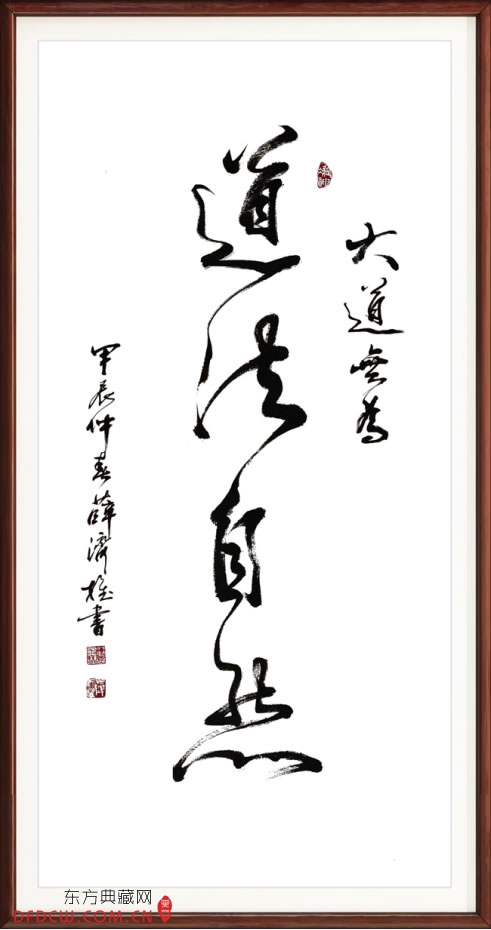 大道無為
道法自然
甲辰仲春薛濟書
东方典藏网
DFDCW.COM.CN